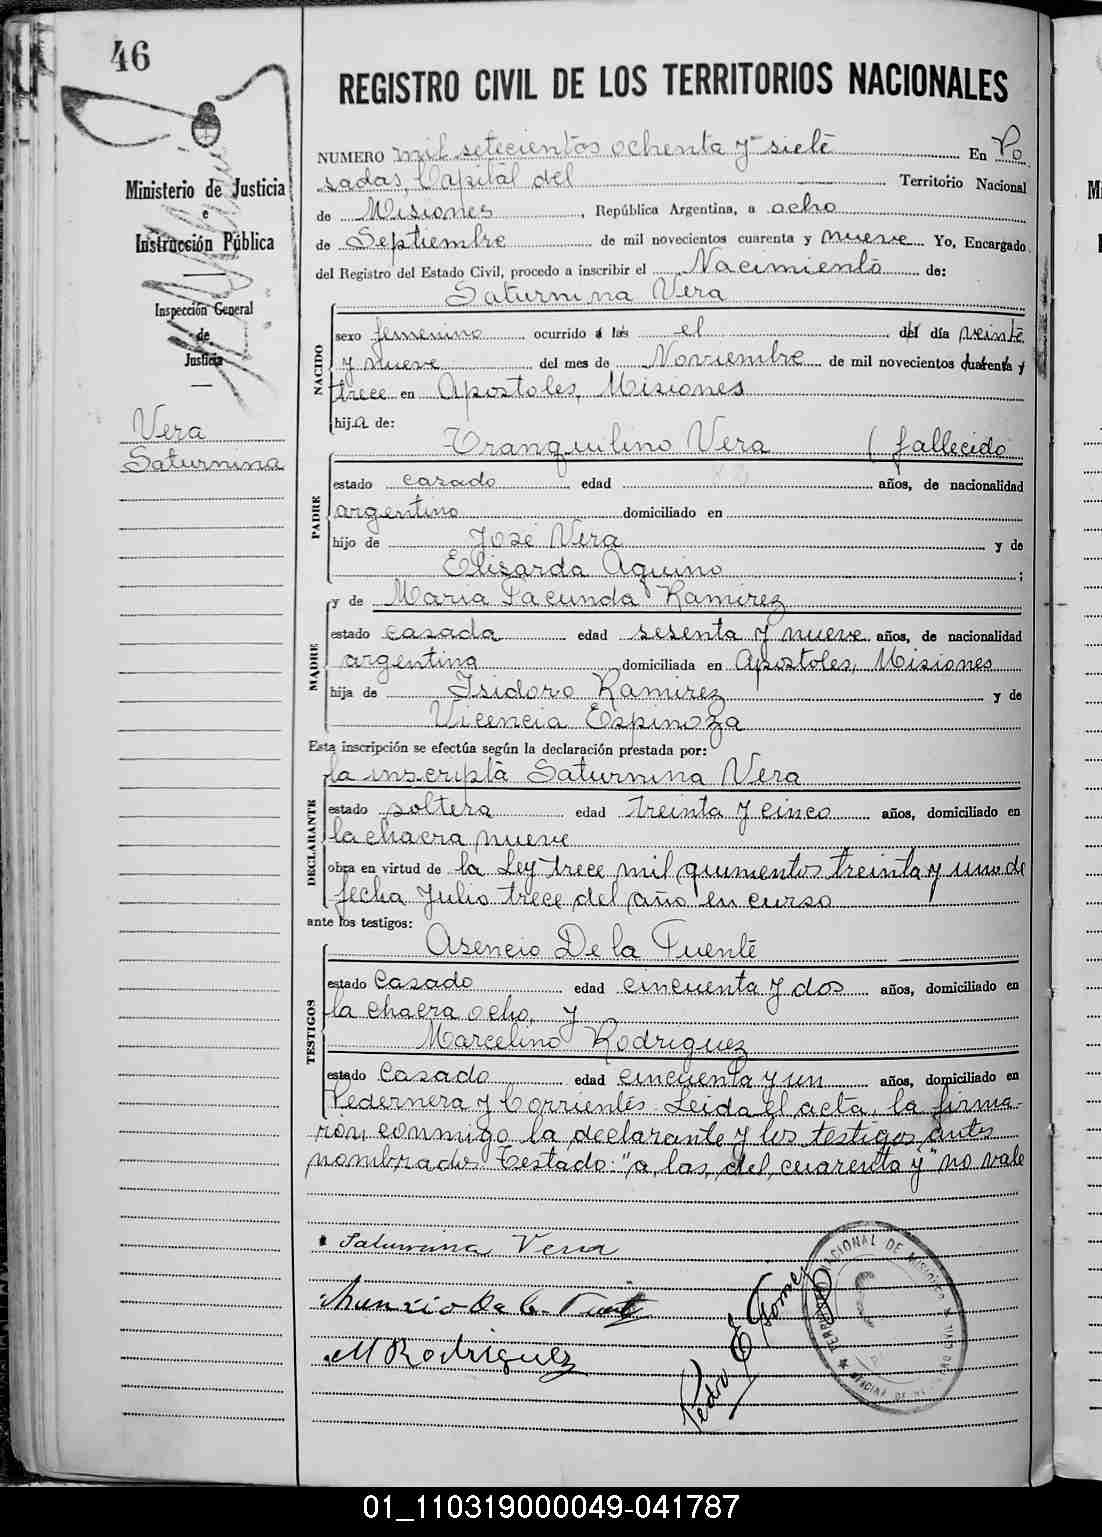 46
REGISTRO CIVIL DE LOS TERRITORIOS NACIONALES
Ministerio de Justicia
e
Instrucción Pública
Inspección General
de
Justicia
Vera
Saturnina
NUMERO mil setecientos ochenta y siete En Po
sadas, Capital del Territorio Nacional
de Misiones, República Argentina, a ocho
de Septiembre de mil novecientos cuarenta y nueve Yo, Encargado
del Registro del Estado Civil, procedo a inscribir el Nacimiento de:
Saturnina Vera
NACIDO
sexo femenino ocurrido a las el del día veinte
y nueve del mes de Noviembre de mil novecientos cuarenta y
trece en Apostoles, Misiones
hija de:
Tranquilino Vera (fallecido
PADRE
estado casado edad años, de nacionalidad
argentino domiciliado en
hijo de José Vera y de
Elisarda Aquino ;
y de Maria Facunda Ramirez
MADRE
estado casada edad sesenta y nueve años, de nacionalidad
argentina domiciliada en Apostoles, Misiones
hija de Isidoro Ramirez y de
Vicencia Espinoza
Esta inscripción se efectúa según la declaración prestada por:
la inscripta Saturnina Vera
DECLARANTE
estado soltera edad treinta y cinco años, domiciliado en
la chacra nueve
obra en virtud de la Ley trece mil quinientos treinta y uno de
fecha Julio trece del año en curso
ante los testigos:
Asencio De la Fuente
TESTIGOS
estado Casado edad cincuenta y dos años, domiciliado en
la chacra ocho, y
Marcelino Rodriguez
estado Casado edad cincuenta y un años, domiciliado en
Pedernera y Corrientes. Leida el acta, la firma-
ron conmigo la declarante y los testigos antes
nombrados. Testado: "a, las, del, cuarenta y" no vale
Saturnina Vera
M Rodriguez
Pedro E Gomez
01_110319000049-041787